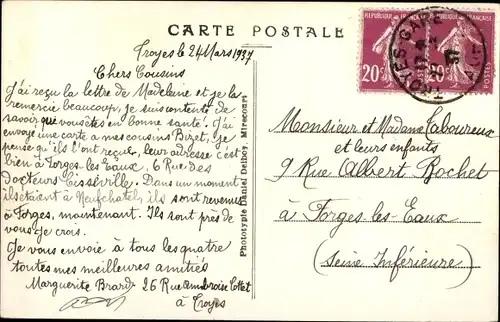 CARTE POSTALE
Troyes le 24 Mars 1937
Chers Cousins
J'ai reçu la lettre de Madeleine et je la
remercie beaucoup, je suis contente de
savoir que vous êtes en bonne santé! J'ai
envoyé une carte a mes cousins Bizet, je
pense qu'ils l'ont reçue, leur adresse c'est
bien à Forges les Eaux, 6 Rue des
Docteurs Cisséville. Dans un moment
ils etaient à Neufchatel, ils sont revenus
à Forges, maintenant. Ils sont près de
vous je crois.
Je vous envoie à tous les quatre
toutes mes meilleures amitiés
Marguerite Brard 26 Rue ambroise Cottet
à Troyes
Phototypie Daniel Delboy, Mirecourt
REPUBLIQUE FRANÇAISE
20c
POSTES
REPUBLIQUE FRANÇAISE
20c
POSTES
TROYES GARE
37
AUBE
Monsieur et Madame Laboureux
et leurs enfants
9 Rue Albert Bochet
à Forges-les-Eaux
(Seine Inférieure)